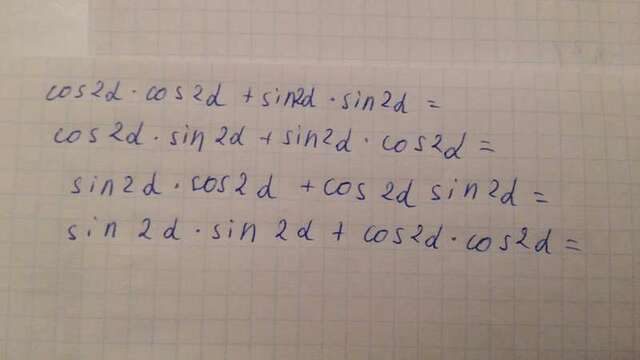 cos2d · cos2d + sin2d · sin2d =
cos2d · sin2d + sin2d · cos2d =
sin2d · cos2d + cos2d sin2d =
sin2d · sin2d + cos2d · cos2d =